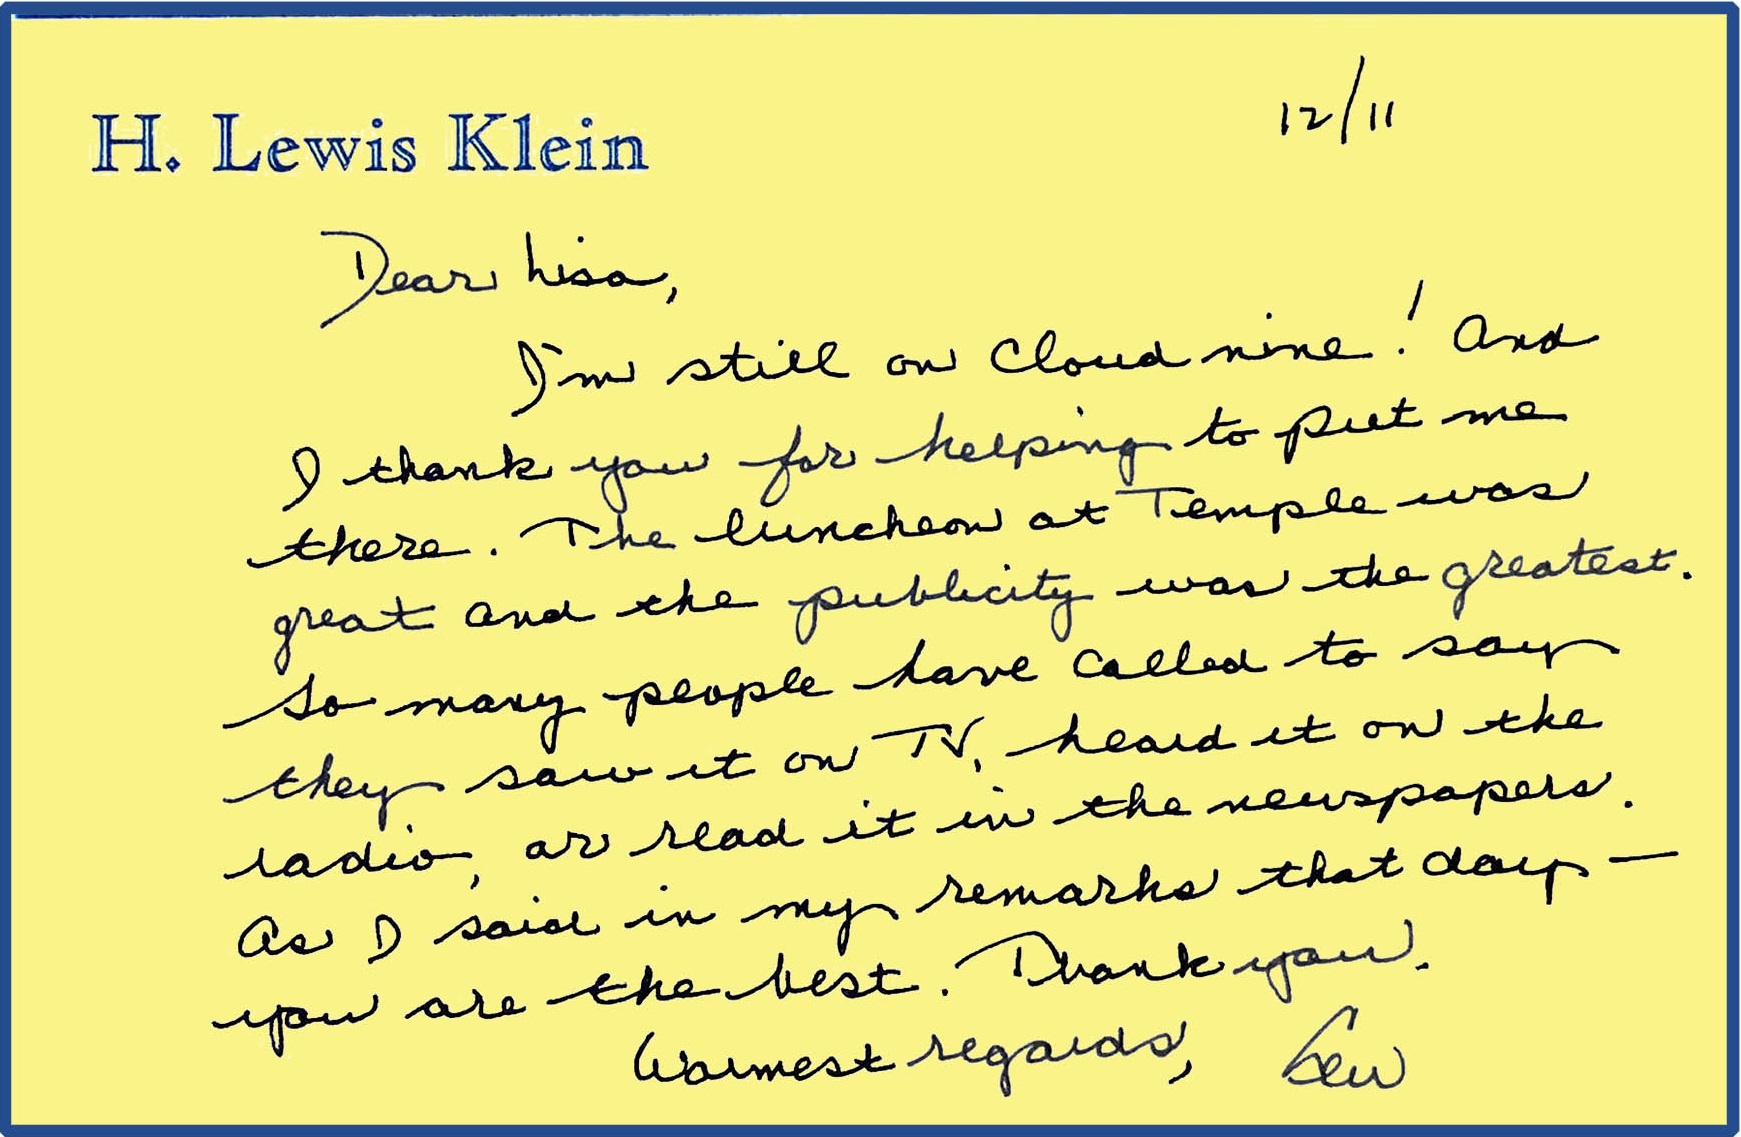 H. Lewis Klein
12/11
Dear Lisa,
I'm still on Cloud nine! And
I thank you for helping to put me
there. The luncheon at Temple was
great and the publicity was the greatest.
So many people have called to say
they saw it on TV, heard it on the
radio, or read it in the newspapers.
As I said in my remarks that day —
you are the best. Thank you.
Warmest regards, Lew